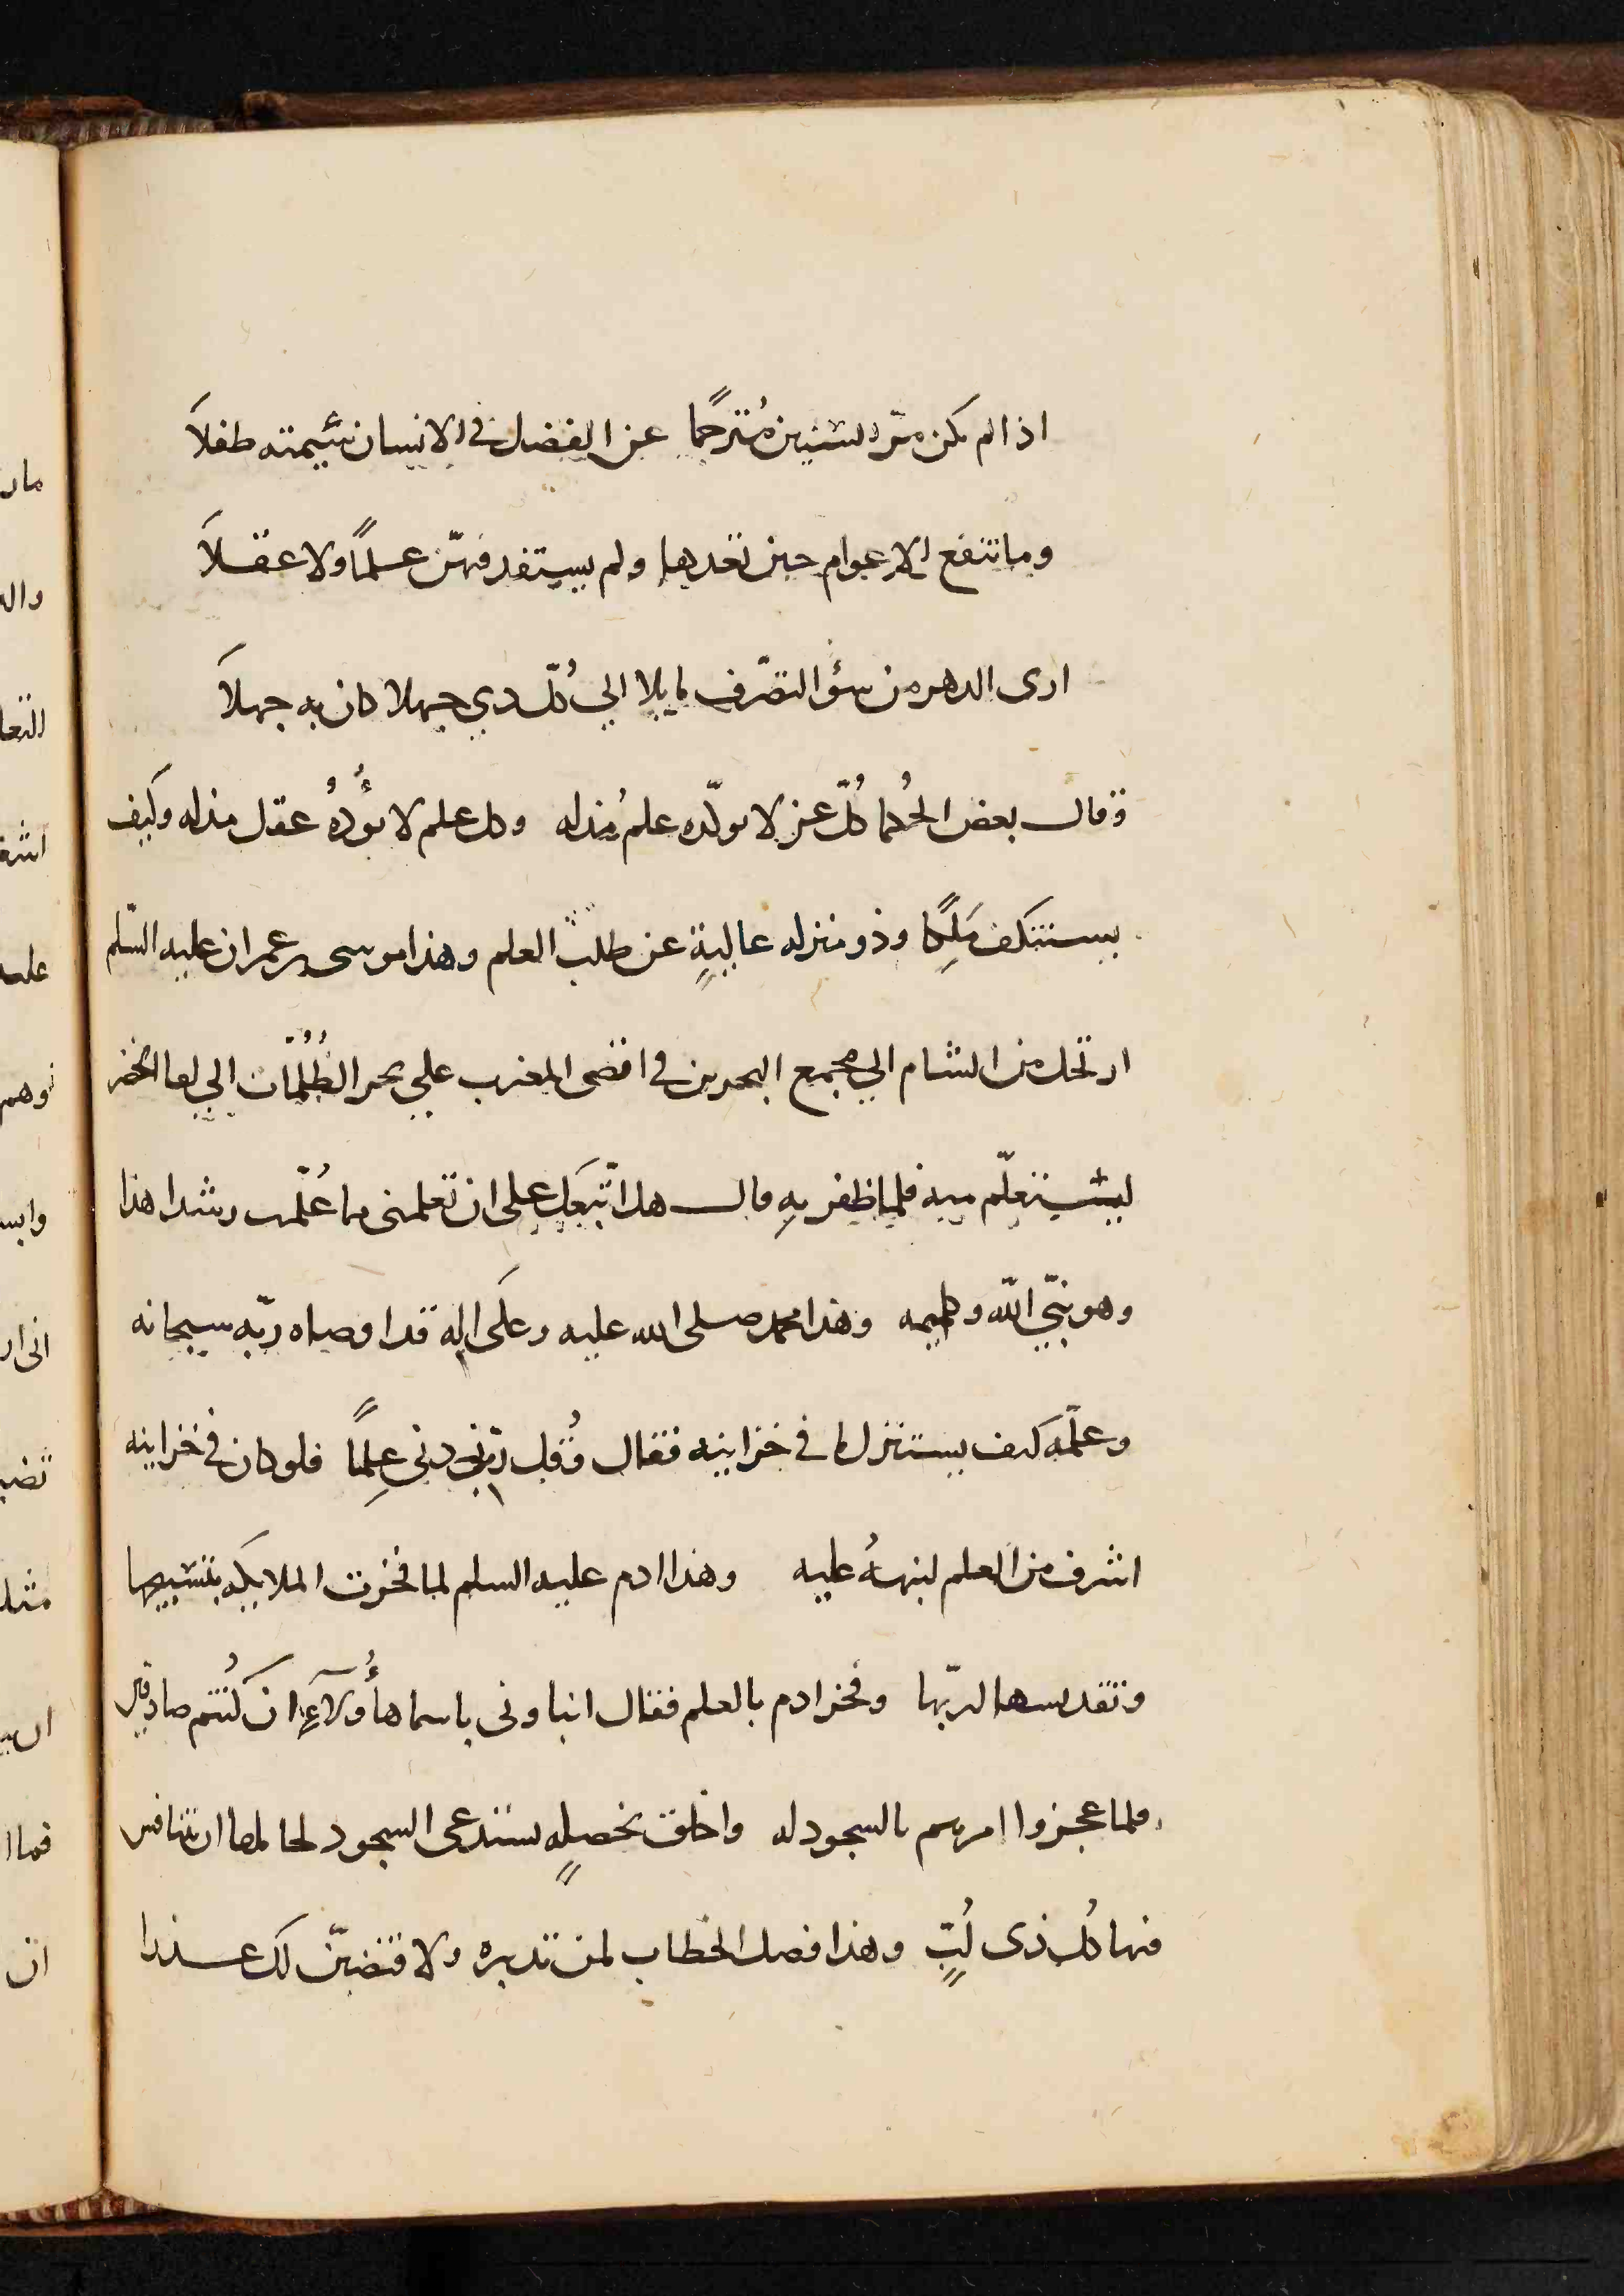 اذا لم يكن مرّ السنين مُترجمًا عن الفضل في الانسان سميته طفلاَ
وما تنفع الاعوام حين تعدها ولم يستفد فيهنّ علمًا ولا عقلاَ
ارى الدهر من سؤ التصرّف مايلا الي كُلّ ذي جهلا كان به جهلاَ
وقال بعض الحُكما كُلّ عز لا يولّده علم مُذله وكل علم لا يؤُدهُ عقل مذله وكيف
يستنكف مَلِكًا وذو منزله عاليةٍ عن طلب العلم وهذا موسى بن عمران عليه السّلم
ارتحل من الشام الي مجمع البحرين في اقصى المغرب علي بحر الظُلُمات الي لقا الخضر
ليستعلّم منه فلما ظفر بهِ قال هل اتّبعكَ على ان تعلمنى مما عُلّمت رشدا هذا
وهو نبيّ اللّه وكليمه وهذا محمد صلى الله عليه وعلَى اله قد اوصاه ربّه سبحانه
وعلّمَه كيف يستنزل ما في خزاينه فقال وُقل ربّ زدنى عِلمًا فلو كان في خزاينه
اشرف من العلم لنبههُ عليه وهذا ادم عليه السلم لما فخرت الملايكه بتسبيحها
وتقديسها لربّها وفخر ادم بالعلم فقال انباونى باسما هأُولآءِ ان كُنتم صادقين
فلما عجزوا امرهم بالسجود له واخلق بخصلهٍ تستدعى السجود لحاملها ان يتنافس
فيها كُل ذى لُبٍّ وهذا فصل الخطاب لمن تدبره ولا قتضبنّ لك عددا